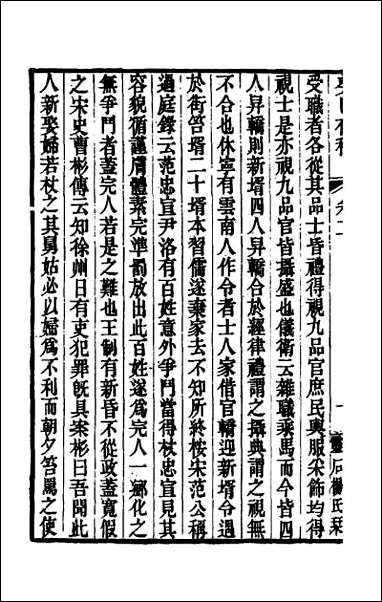 受職者各從其品士皆禮得視九品官庶民輿服采飾均得
視士是亦視九品官皆攝盛也儀衛云雜職乘馬而今皆四
人舁轎則新壻四人舁轎合於經律禮謂之攝典謂之視無
不合也休寧有雲南人作令者士人家借官轎迎新壻令遇
於街笞壻二十壻本習儒遂棄家去不知所終桉宋范公稱
過庭錄云范忠宣尹洛有百姓意外爭鬥當得杖忠宣見其
容貌循謹膚體素完準罰放出此百姓遂爲完人一鄉化之
無爭鬥者蓋完人若是之難也王制有新昏不從政蓋寬假
之宋史曹彬傳云知徐州日有吏犯罪旣具案彬曰吾聞此
人新娶婦若杖之其舅姑必以婦爲不利而朝夕笞罵之使